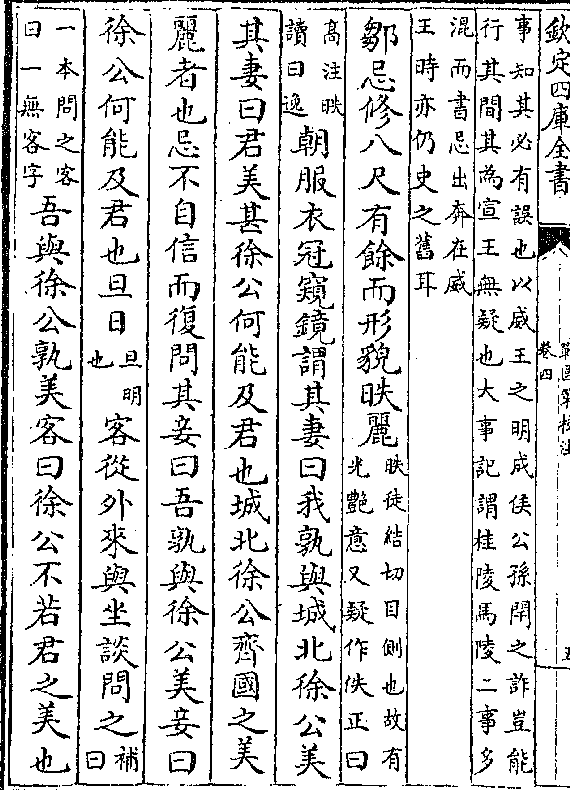 欽定四庫全書
戰國策校注
卷四
五
事知其必有誤也以威王之明成侯公孫閈之詐豈能
行其間其為宣王無疑也大事記謂桂陵馬陵二事多
混而書忌出奔在威
王時亦仍史之舊耳
鄒忌修八尺有餘而形貌昳麗昳徒結切目側也故有光艷意又疑作佚正曰
高注昳讀曰逸朝服衣冠窺鏡謂其妻曰我孰與城北徐公美
其妻曰君美甚徐公何能及君也城北徐公齊國之美
麗者也忌不自信而復問其妾曰吾孰與徐公美妾曰
徐公何能及君也旦日旦明也客從外來與坐談問之補曰
一本問之客曰一無客字吾與徐公孰美客曰徐公不若君之美也